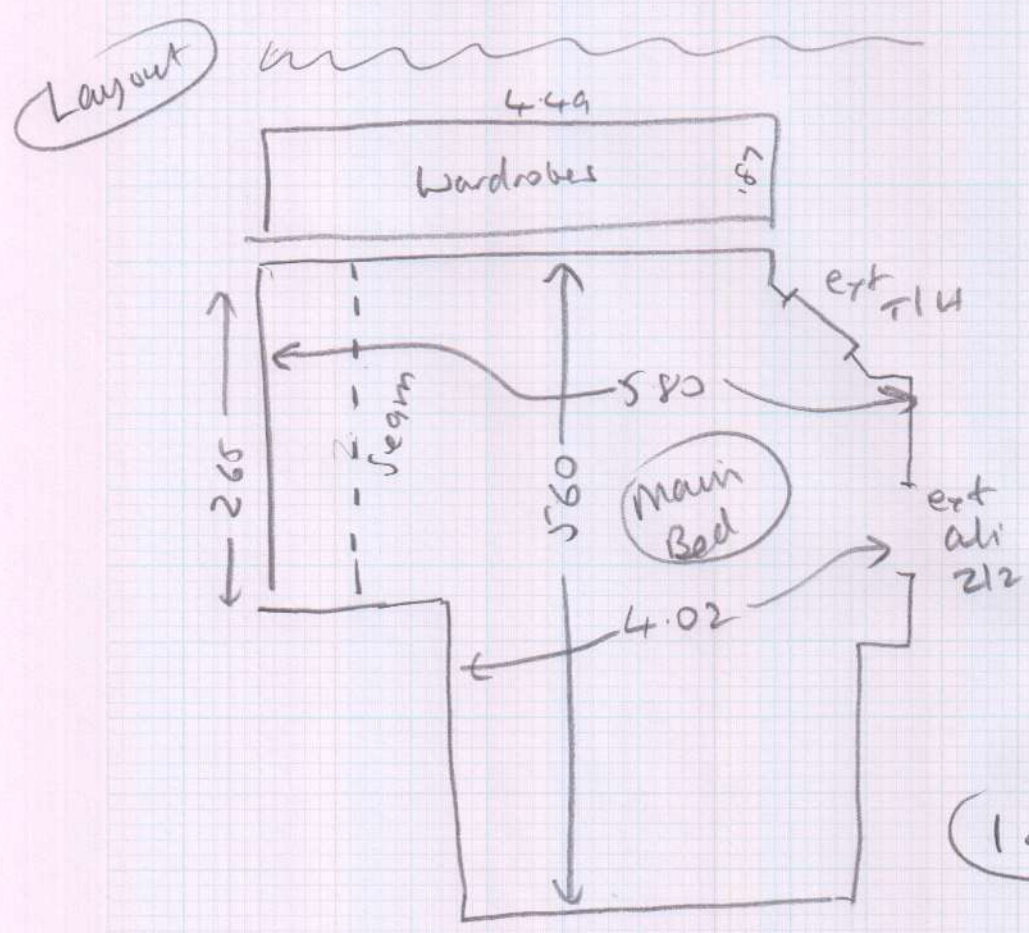 Layout
4.49
Wardrobes
.67
ext
T/H
580
265
Seam
560
Main
Bed
ext
ali
212
4.02